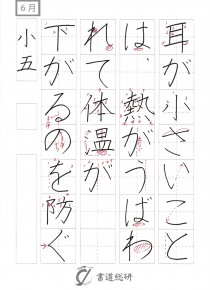 6月
耳が小さいこと
は、熱がうばわ
れて体温が
下がるのを防ぐ
小五
書道総研